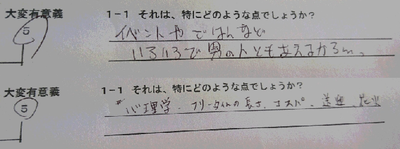 大変有意義 1-1 それは、特にどのような点でしょうか?
5 イベントやごはんなど
いろいろで男の人とも
大変有意義 1-1 それは、特にどのような点でしょうか?
5 心理学、フリータイムの長さ、コスパ、送迎、花火